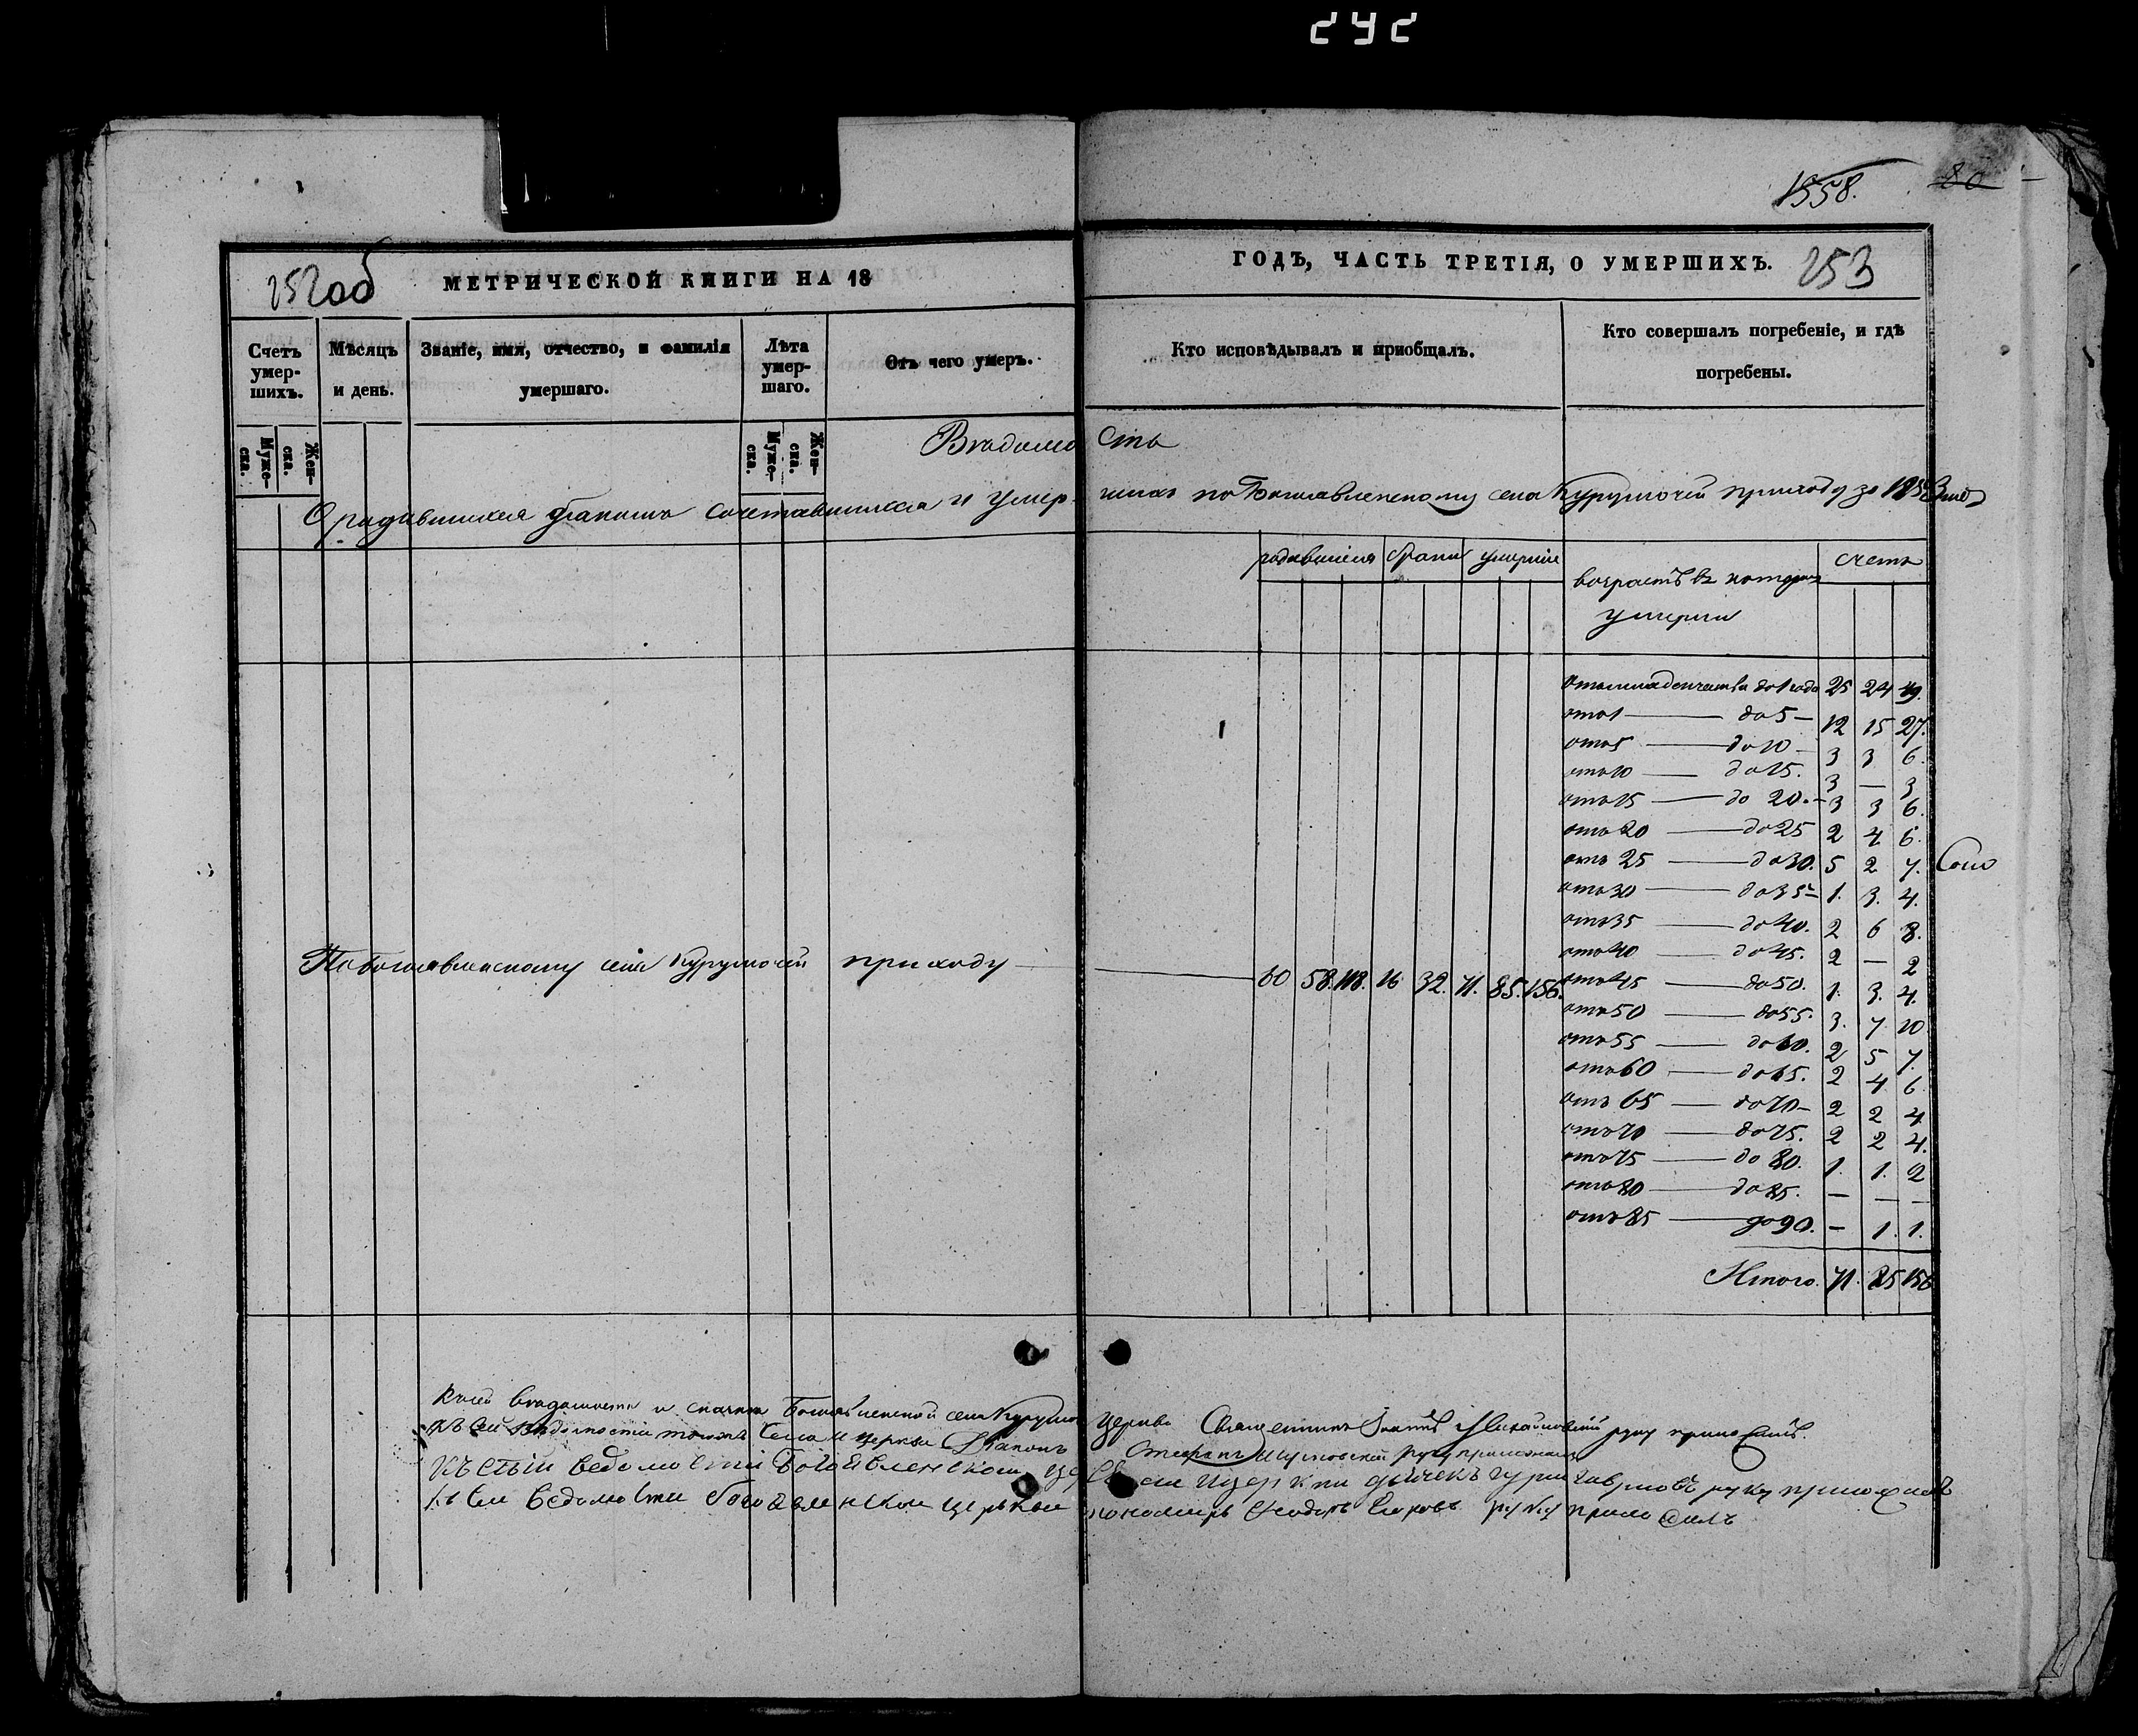 292
1558.
80
252об МЕТРИЧЕСКОЙ КНИГИ НА 18
ГОДЪ, ЧАСТЬ ТРЕТІЯ, О УМЕРШИХЪ. 253
Счетъ умер-шихъ.
Мѣсяцъ и день.
Званіе, имя, отчество, и фамилія умершаго.
Лѣта умер-шаго.
Отъ чего умеръ.
Кто исповѣдывалъ и пріобщалъ.
Кто совершалъ погребеніе, и гдѣ погребены.
Муже-ска.
Жен-ска.
Муже-ска.
Жен-ска.
Вѣдомость
О родившихся бракомъ сочетавшихся и умершихъ по Богоявленскому села Курумочей приходу за год
родившіеся браки умершіе
возрастъ въ умерли
счетъ
отъ младенчества до 1 года 25 24 49.
отъ 1 — до 5 — 12 15 27.
отъ 5 — до 10 — 3 3 6.
отъ 10 — до 15. 3 — 3
отъ 15 — до 20. — 3 3 6.
отъ 20 — до 25 2 4 6.
отъ 25 — до 30. 5 2 7.
отъ 30 — до 35 — 1. 3. 4.
отъ 35 — до 40. 2 6 8.
отъ 40 — до 45. 2 — 2
По Богоявленскому села Курумочей приходу — 60 58. 118. 16 32. 71. 85. 156.
отъ 45 — до 50. 1. 3. 4.
отъ 50 — до 55. 3. 7 10
отъ 55 — до 60. 2 5 7.
отъ 60 — до 65. 2 4 6
отъ 65 — до 70 — 2 2 4
отъ 70 — до 75. 2 2 4.
отъ 75 — до 80. 1. 1. 2
отъ 80 — до 85. — — —
отъ 85 — до 90. — 1. 1.
Итого. 71. 85 156
Къ сей вѣдомости Богоявленской села церкви Священникъ руку приложилъ.
Къ сей вѣдомости села церкви Діаконъ Стефанъ руку приложилъ
ведомости Богоявленской дьячекъ руку приложилъ
Къ сей ведомости богоявленской церкви пономарь руку приложилъ